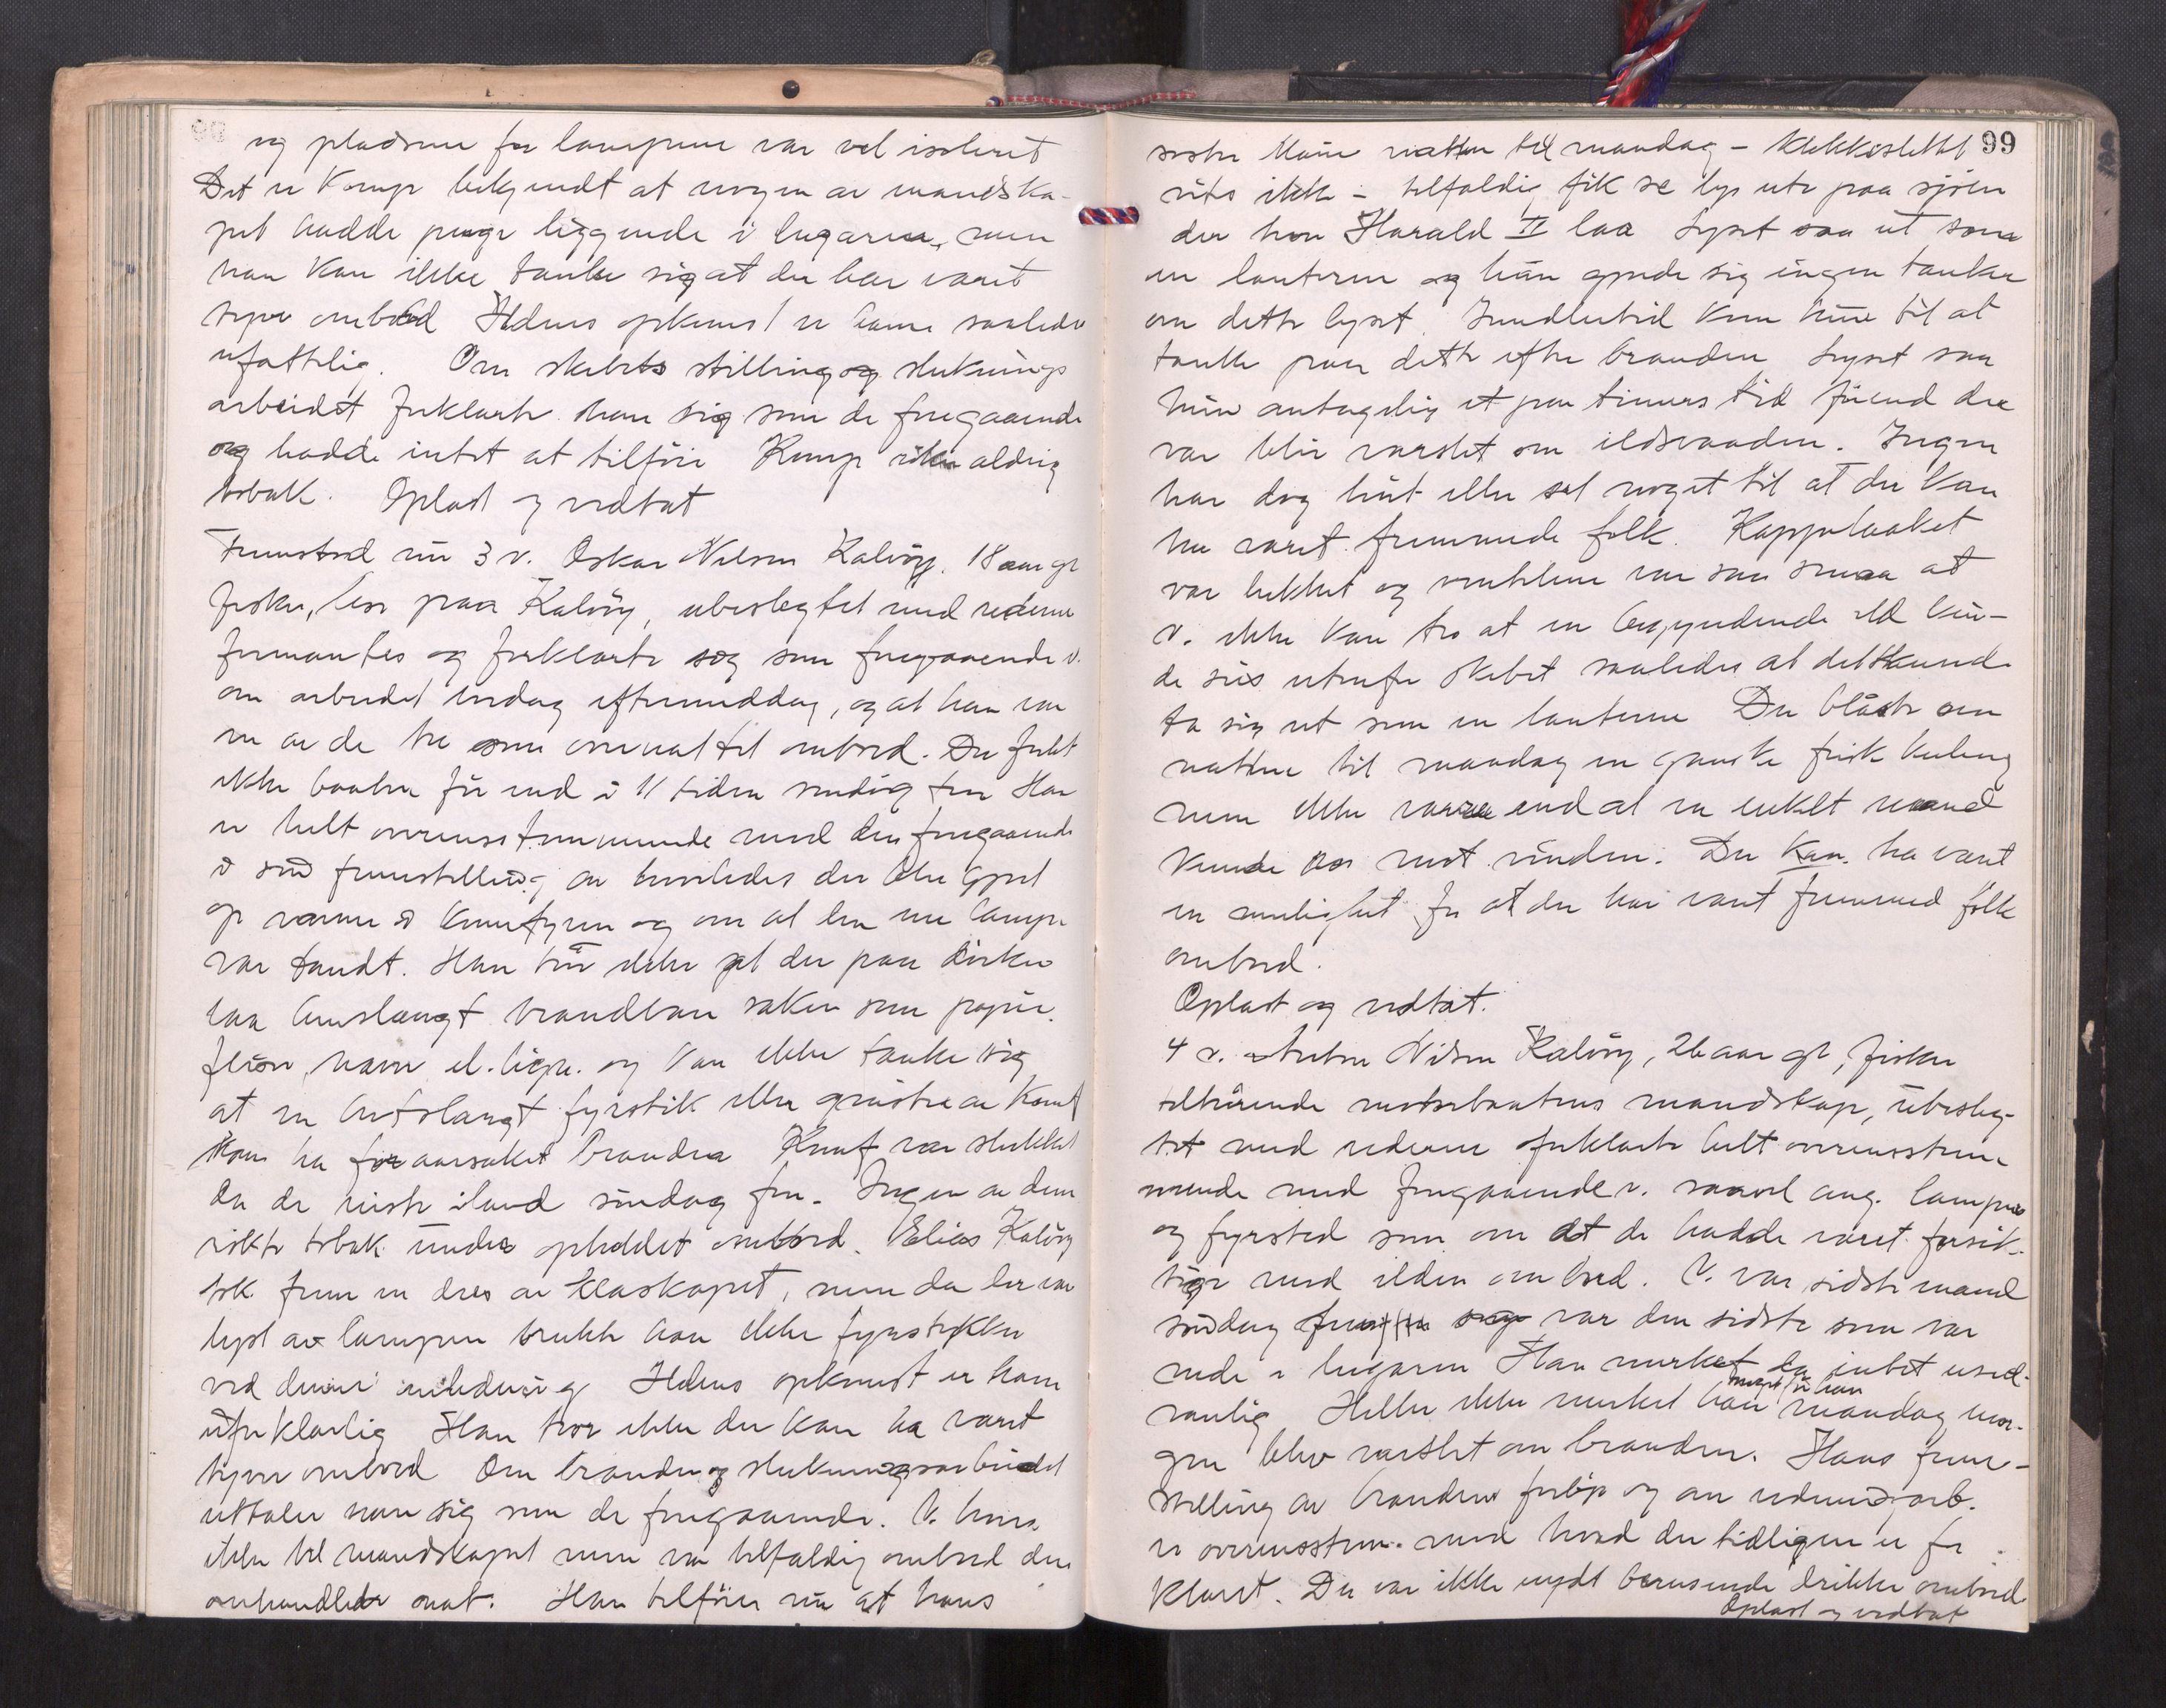 og pladsene for lampene var vel isoleret
Det er Komp bekjendt at nogen av mandska-
pet hadde penge liggende i lugaren, men
han kan ikke tænke sig at der har været
tyve ombord Ildens opkomst er ham saaledes
ufattelig. Om skibets stilling og sluknings
arbeidet forklarte han sig som de foregaaende
og hadde intet at tilföie Komp röker aldrig
tobak. Oplæst og vedtat
Fremstod nu 3 v. Oskar Nilsen Kalvöy, 18 aar gl
fisker, bor paa Kalvöy, ubeslegtet med rederne
formantes og forklarte sig som foregaaende v.
om arbeidet lördag eftermiddag, og at han var
en av de tre som overnattet ombord. De forlot
ikke baaten för end i 11 tiden söndag fm Han
er helt overensstemmende med den foregaaende
i sin fremstilling av hvorledes der blev gjort
op varme i komfyren og om at bare en lampe
var tændt. Han tror ikke at der paa dörken
laa henslængt brændbare saker som papir,
fliser, tvare el. lign. og kan ikke tænke sig
at en bortslængt fyrstik eller gnister av komf
kan ha foraarsaket branden Komf var slukket
da de reiste iland söndag fm. Ingen av dem
rökte tobak under opholdet ombord. Elias Kalvöy
tok frem en dres av klæskapet, men da der var
lyst av lampen brukte han ikke fyrstikker
ved denne anledning Ildens opkomst er ham
uforklarlig Han tror ikke der kan ha været
tyver ombord Om branden og slukningsarbeidet
uttaler han sig som de foregaaende. V. hörer
ikke til mandskapet men var tilfældig ombord den
omhandlede nat. Han tilföier nu at hans
99
söster Marie natten til mandag – klokkeslettet
vites ikke – tilfældig fik se lys ute paa sjöen
der hvor Harald II laa Lyset saa ut som
en lanterne og hun gjorde sig ingen tanker
om dette lyset. Imidlertid kom hun til at
tænke paa dette efter branden Lyset saa
hun antagelig et par timers tid förend der
var blir varslet om ildsvaaden. Ingen
har dog hört eller set noget til at der kan
ha været fremmede folk. Kappelaaket
var lukket og ventilene var saa smaa at
v. ikke kan tro at en begyndende ild kun-
de sees utenfor skibet saaledes at det kunde
ta sig ut som en lanterne Det blåste om
natten til mandag en ganske frisk kuling
men ikke værre end at en enkelt mand
kunde ro mot vinden. Der kan ha været
en mulighet for at der har været fremmed folk
ombord.
Oplæst og vedtat.
4 v. Anton Nilsen Kalvöy, 26 aar gl, fisker
tilhörende motorbaatens mandskap, ubesleg-
tet med rederne forklarte helt overensstem-
mende med foregaaende v. saavel ang. lampen
og fyrsted som om at de hadde været forsik-
tige med ilden ombord. V. var sidste mand
söndag var den sidste som var
nede i lugaren Han merket da intet used-
vanlig Heller ikke merket han noget da han mandag mor-
gen blev varslet om branden. Hans frem-
stilling av brandens forlöp og om redningsarb.
er overensstem. med hvad der tidligere er for
klaret. Der var ikke nydt berusende drikke ombord
Oplæst og vedtat